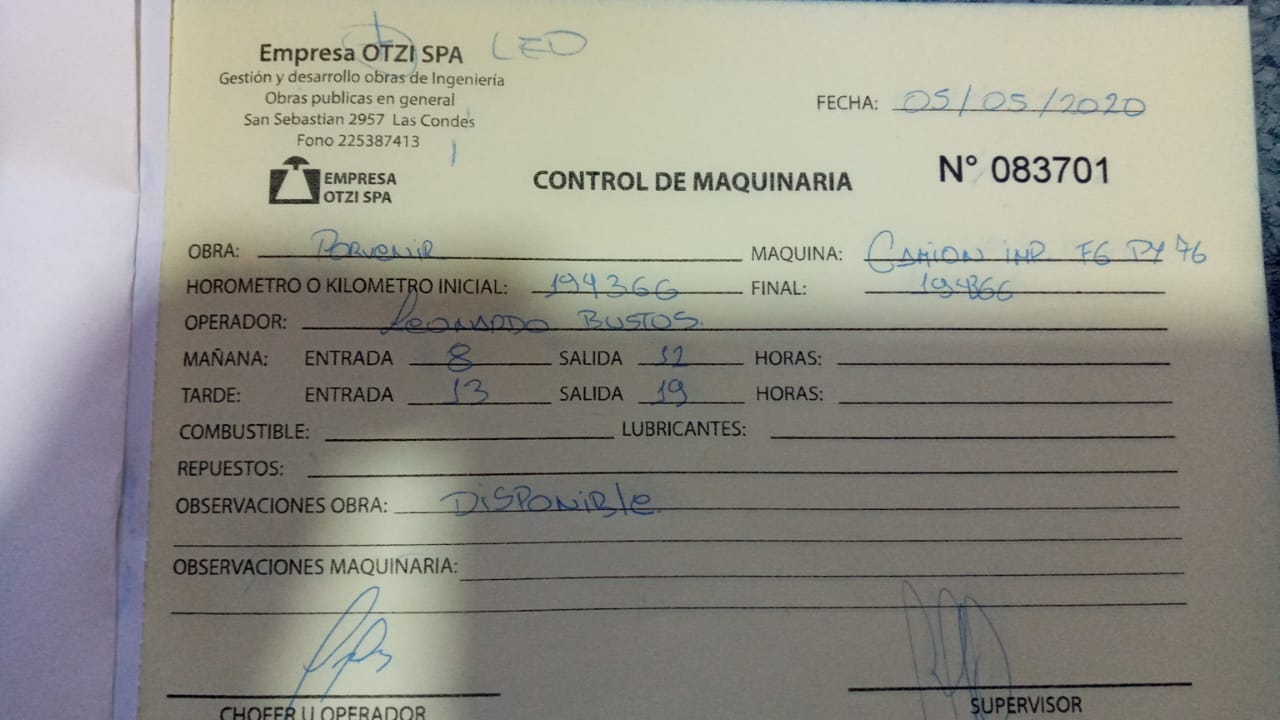 Empresa OTZI SPA LED
Gestión y desarrollo obras de Ingeniería
Obras publicas en general
San Sebastian 2957 Las Condes
Fono 225387413
FECHA: 05/05/2020
EMPRESA
OTZI SPA
CONTROL DE MAQUINARIA
N° 083701
OBRA: Porvenir MAQUINA: Camion imp. FG PY 76
HOROMETRO O KILOMETRO INICIAL: 194366 FINAL: 194366
OPERADOR: Leonardo Bustos.
MAÑANA: ENTRADA 8 SALIDA 12 HORAS:
TARDE: ENTRADA 13 SALIDA 19 HORAS:
COMBUSTIBLE: LUBRICANTES:
REPUESTOS:
OBSERVACIONES OBRA: Disponible.
OBSERVACIONES MAQUINARIA:
CHOFER U OPERADOR SUPERVISOR